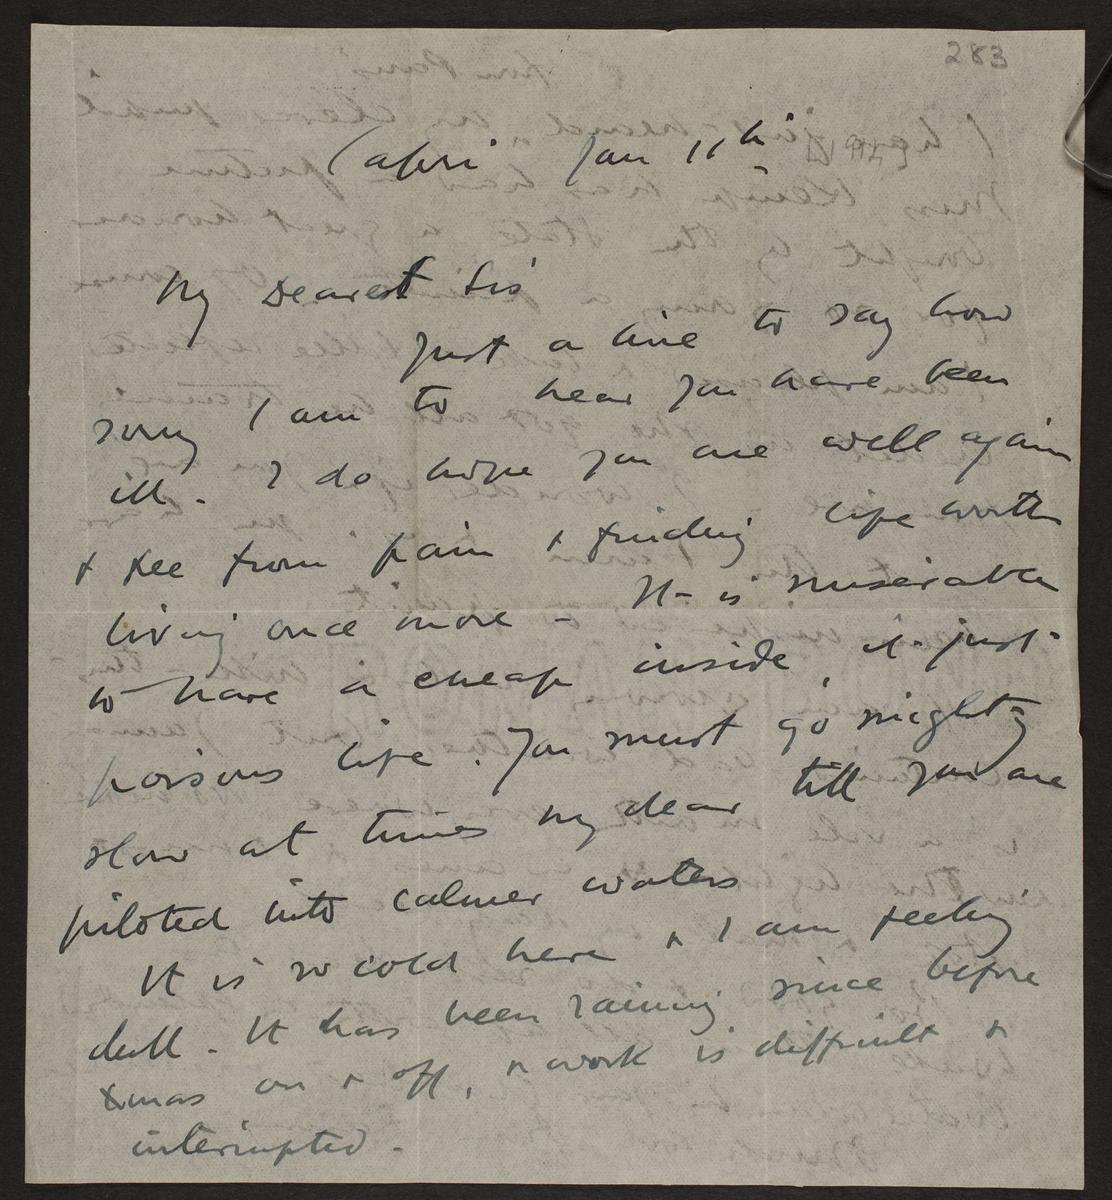 283
Capri Jan 11th
My Dearest Sis
Just a line to say how
sorry I am to hear you have been
ill. I do hope you are well again
& free from pain & finding life worth
living once more - It is miserable
to have a cheap inside, it just
poisons life. You must go mighty
slow at times my dear till you are
piloted into calmer waters
It is so cold here & I am feeling
dull. It has been raining since before
Xmas on & off, & work is difficult &
interrupted.